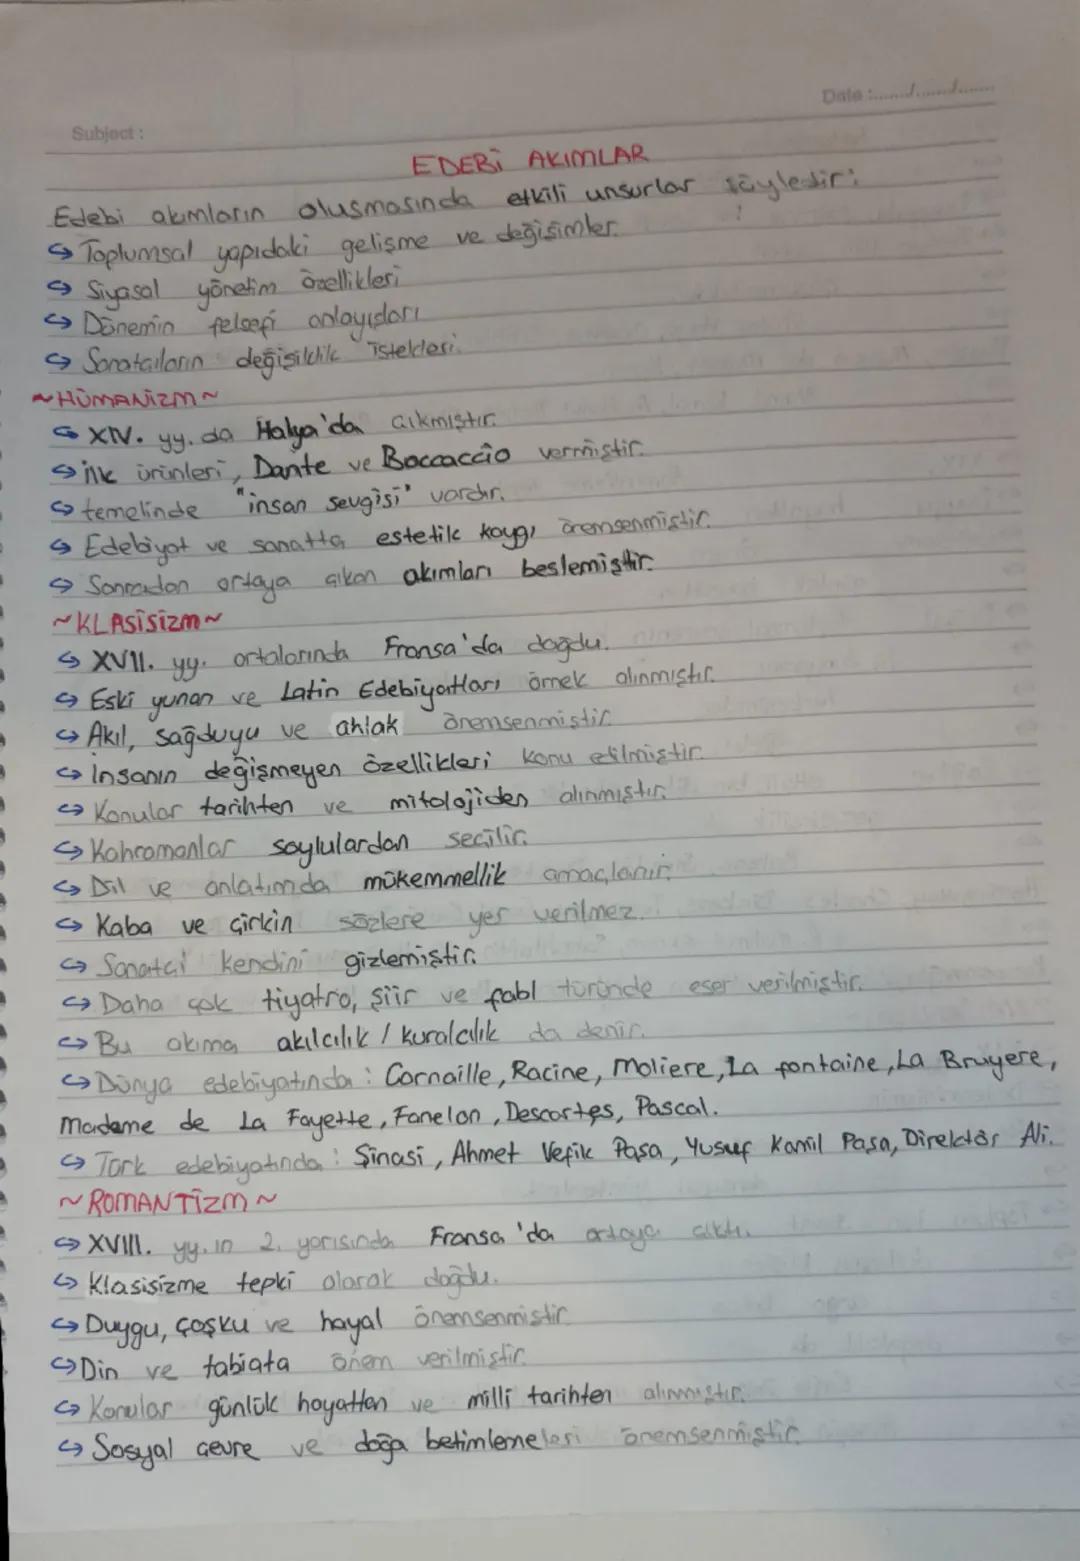 Date :....../....../......
Subject :
EDEBİ AKIMLAR
Edebi akımların oluşmasında etkili unsurlar şöyledir:
↪ Toplumsal yapıdaki gelişme ve değişimler.
↪ Siyasal yönetim özellikleri
↪ Dönemin felsefi anlayışları
↪ Sanatçıların değişiklik istekleri.
~HÜMANİZM~
↪ XIV. yy. da İtalya'da çıkmıştır.
↪ ilk ürünleri, Dante ve Boccaccio vermiştir.
↪ temelinde "insan sevgisi" vardır.
↪ Edebiyat ve sanatta estetik kaygı önemsenmiştir.
↪ Sonradan ortaya çıkan akımları beslemiştir.
~KLASİSİZM~
↪ XVII. yy. ortalarında Fransa'da doğdu.
↪ Eski yunan ve Latin Edebiyatları örnek alınmıştır.
↪ Akıl, sağduyu ve ahlak önemsenmiştir.
↪ İnsanın değişmeyen özellikleri konu edilmiştir.
↪ Konular tarihten ve mitolojiden alınmıştır.
↪ Kahramanlar soylulardan seçilir.
↪ Dil ve anlatımda mükemmellik amaçlanır.
↪ Kaba ve çirkin sözlere yer verilmez.
↪ Sanatçı kendini gizlemiştir.
↪ Daha çok tiyatro, şiir ve fabl türünde eser verilmiştir.
↪ Bu akıma akılcılık / kuralcılık da denir.
↪ Dünya edebiyatında : Cornaille, Racine, Moliere, La fontaine, La Bruyere,
Madame de La Fayette, Fanelon, Descartes, Pascal.
↪ Türk edebiyatında : Şinasi, Ahmet Vefik Paşa, Yusuf Kamil Paşa, Direktör Ali.
~ROMANTİZM~
↪ XVIII. yy. ın 2. yarısında Fransa'da ortaya çıktı.
↪ Klasisizme tepki olarak doğdu.
↪ Duygu, coşku ve hayal önemsenmiştir.
↪ Din ve tabiata önem verilmiştir.
↪ Konular günlük hayattan ve milli tarihten alınmıştır.
↪ Sosyal çevre ve doğa betimlemeleri önemsenmiştir.